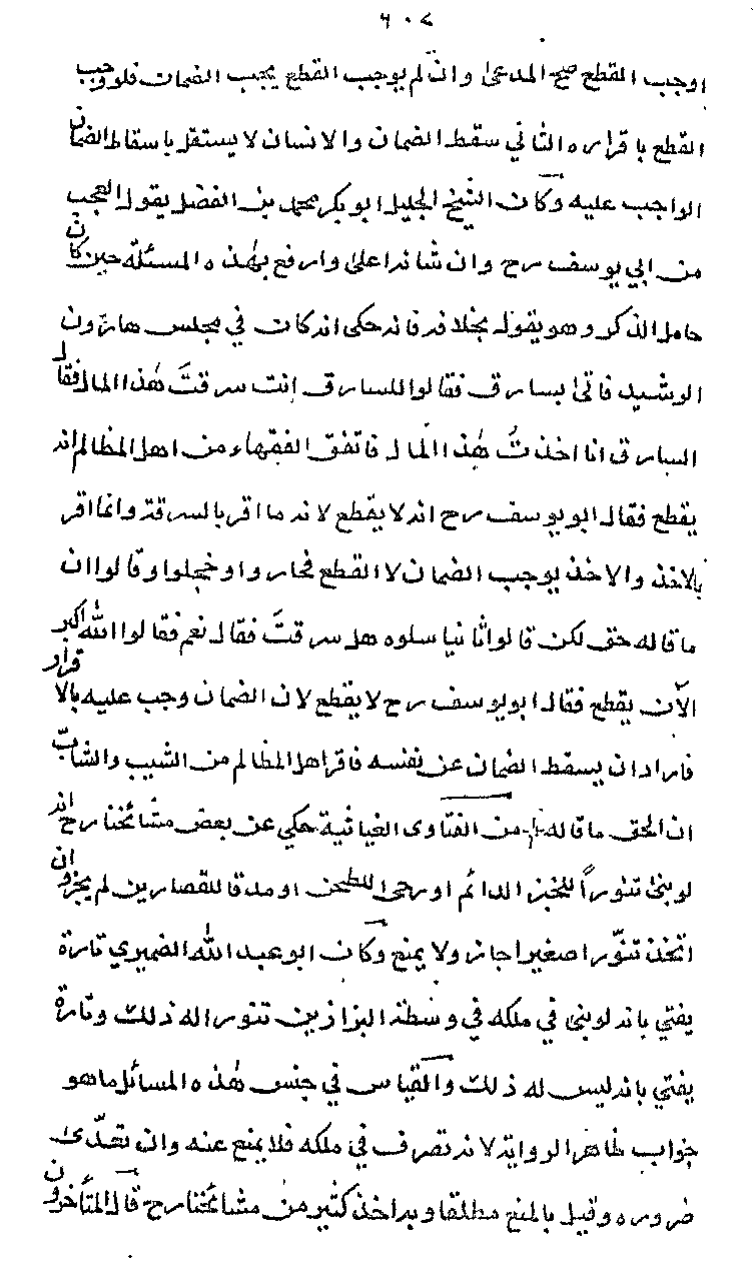 ٦٠٧
اوجب القطع صح المدعى وان لم يوجب القطع يجب الضمان فلو وجب
القطع باقراره الثاني سقط الضمان والانسان لا يستقل باسقاط الضمان
الواجب عليه وكان الشيخ الجليل ابو بكر محمد بن الفضل يقول العجب
من ابي يوسف رح وان شانه اعلى وارفع بهذه المسئلة حين كان
حامل الذكر وهو يقول بخلافه فانه حكى انه كان في مجلس هارون
الرشيد فاتى بسارق فقالوا للسارق انت سرقت هذا المال فقال
السارق انا اخذت هذا المال فاتفق الفقهاء من اهل المظالم انه
يقطع فقال ابو يوسف رح انه لا يقطع لانه ما اقر بالسرقة وانما اقر
بالاخذ والاخذ يوجب الضمان لا القطع فحاروا وخجلوا وقالوا ان
ما قاله حق لكن قالوا ثانيا سلوه هل سرقت فقال نعم فقالوا الله اكبر
الآن يقطع فقال ابو يوسف رح لا يقطع لان الضمان وجب عليه بالاقرار
فاراد ان يسقط الضمان عن نفسه فاقر اهل المظالم من الشيب والشاب
ان الحق ما قاله من الفتاوى الغياثية حكي عن بعض مشائخنا رح انه
لو بنى تنوراً للخبز الدائم او رحى للطحن او مدقا للقصارين لم يجز وان
اتخذ تنوّرا صغيرا جاز ولا يمنع وكان ابو عبد الله الضميري تارة
يفتي بانه لو بنى في ملكه في وسطة البزازين تنورا له ذلك وتارة
يفتي بانه ليس له ذلك والقياس في جنس هذه المسائل ما هو
جواب ظاهر الرواية لانه تصرف في ملكه فلا يمنع عنه وان تعدّى
ضروره وقيل بالمنع مطلقا وبه اخذ كثير من مشائخنا رح قال المتأخرون